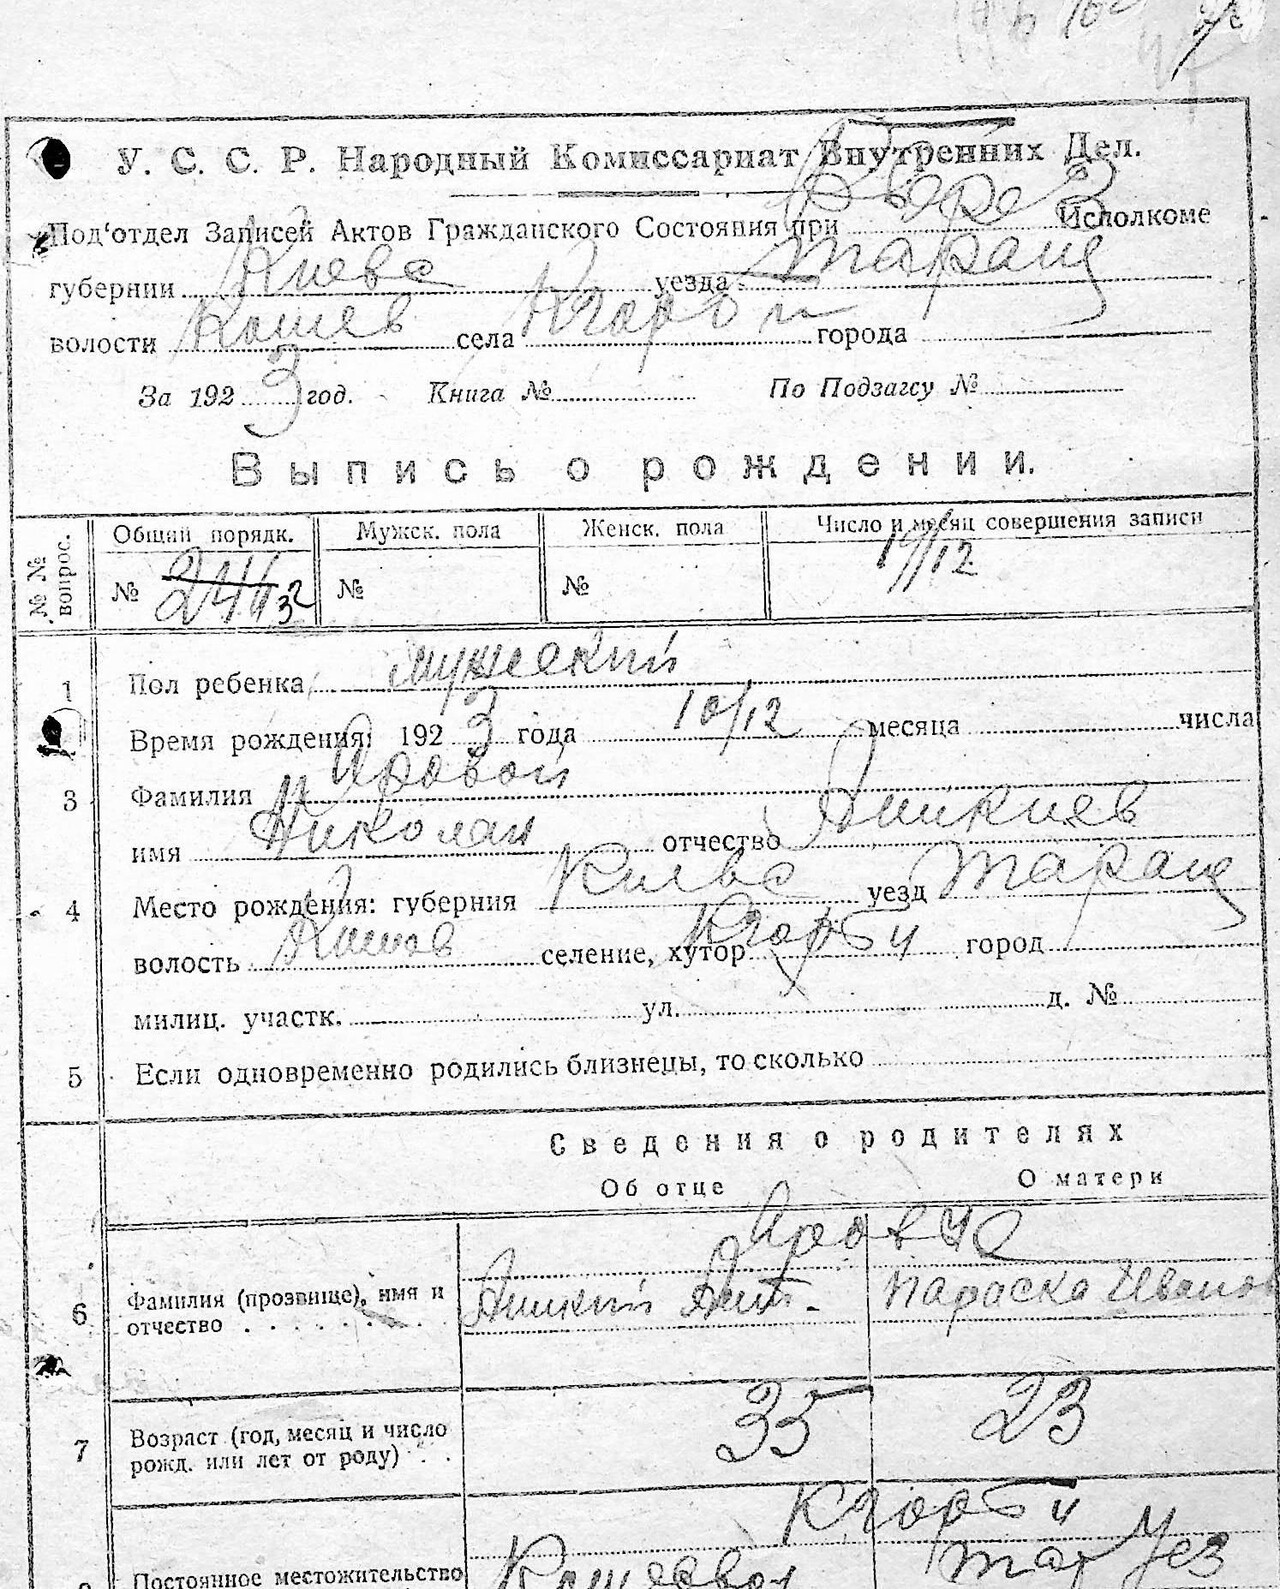 У. С. С. Р. Народный Комиссариат Внутренних Дел.
Под‘отдел Записей Актов Гражданского Состояния при Исполкоме
губернии Киевс уезда Таращ
волости Кошев села города
За 192 3 год. Книга № По Подзагсу №
Выпись о рождении.
№ № вопрос.
Общий порядк. Мужск. пола Женск. пола Число и месяц совершения записи
№ 32 № № 19/12
1 Пол ребенка мужеский
Время рождения: 192 3 года 10/12 месяца числа
3 Фамилия Яровой
имя Николай отчество Аникиев
4 Место рождения: губерния Киевс уезд Таращ
волость Кошов селение, хутор город
милиц. участк. ул. д. №
5 Если одновременно родились близнецы, то сколько
Сведения о родителях
Об отце О матери
6 Фамилия (прозвище), имя и
отчество . . . . . . . .
Аникий Ант. Параска Иванов
7 Возраст (год, месяц и число
рожд. или лет от роду) . . 35 23
Постоянное местожительство Тар Уез